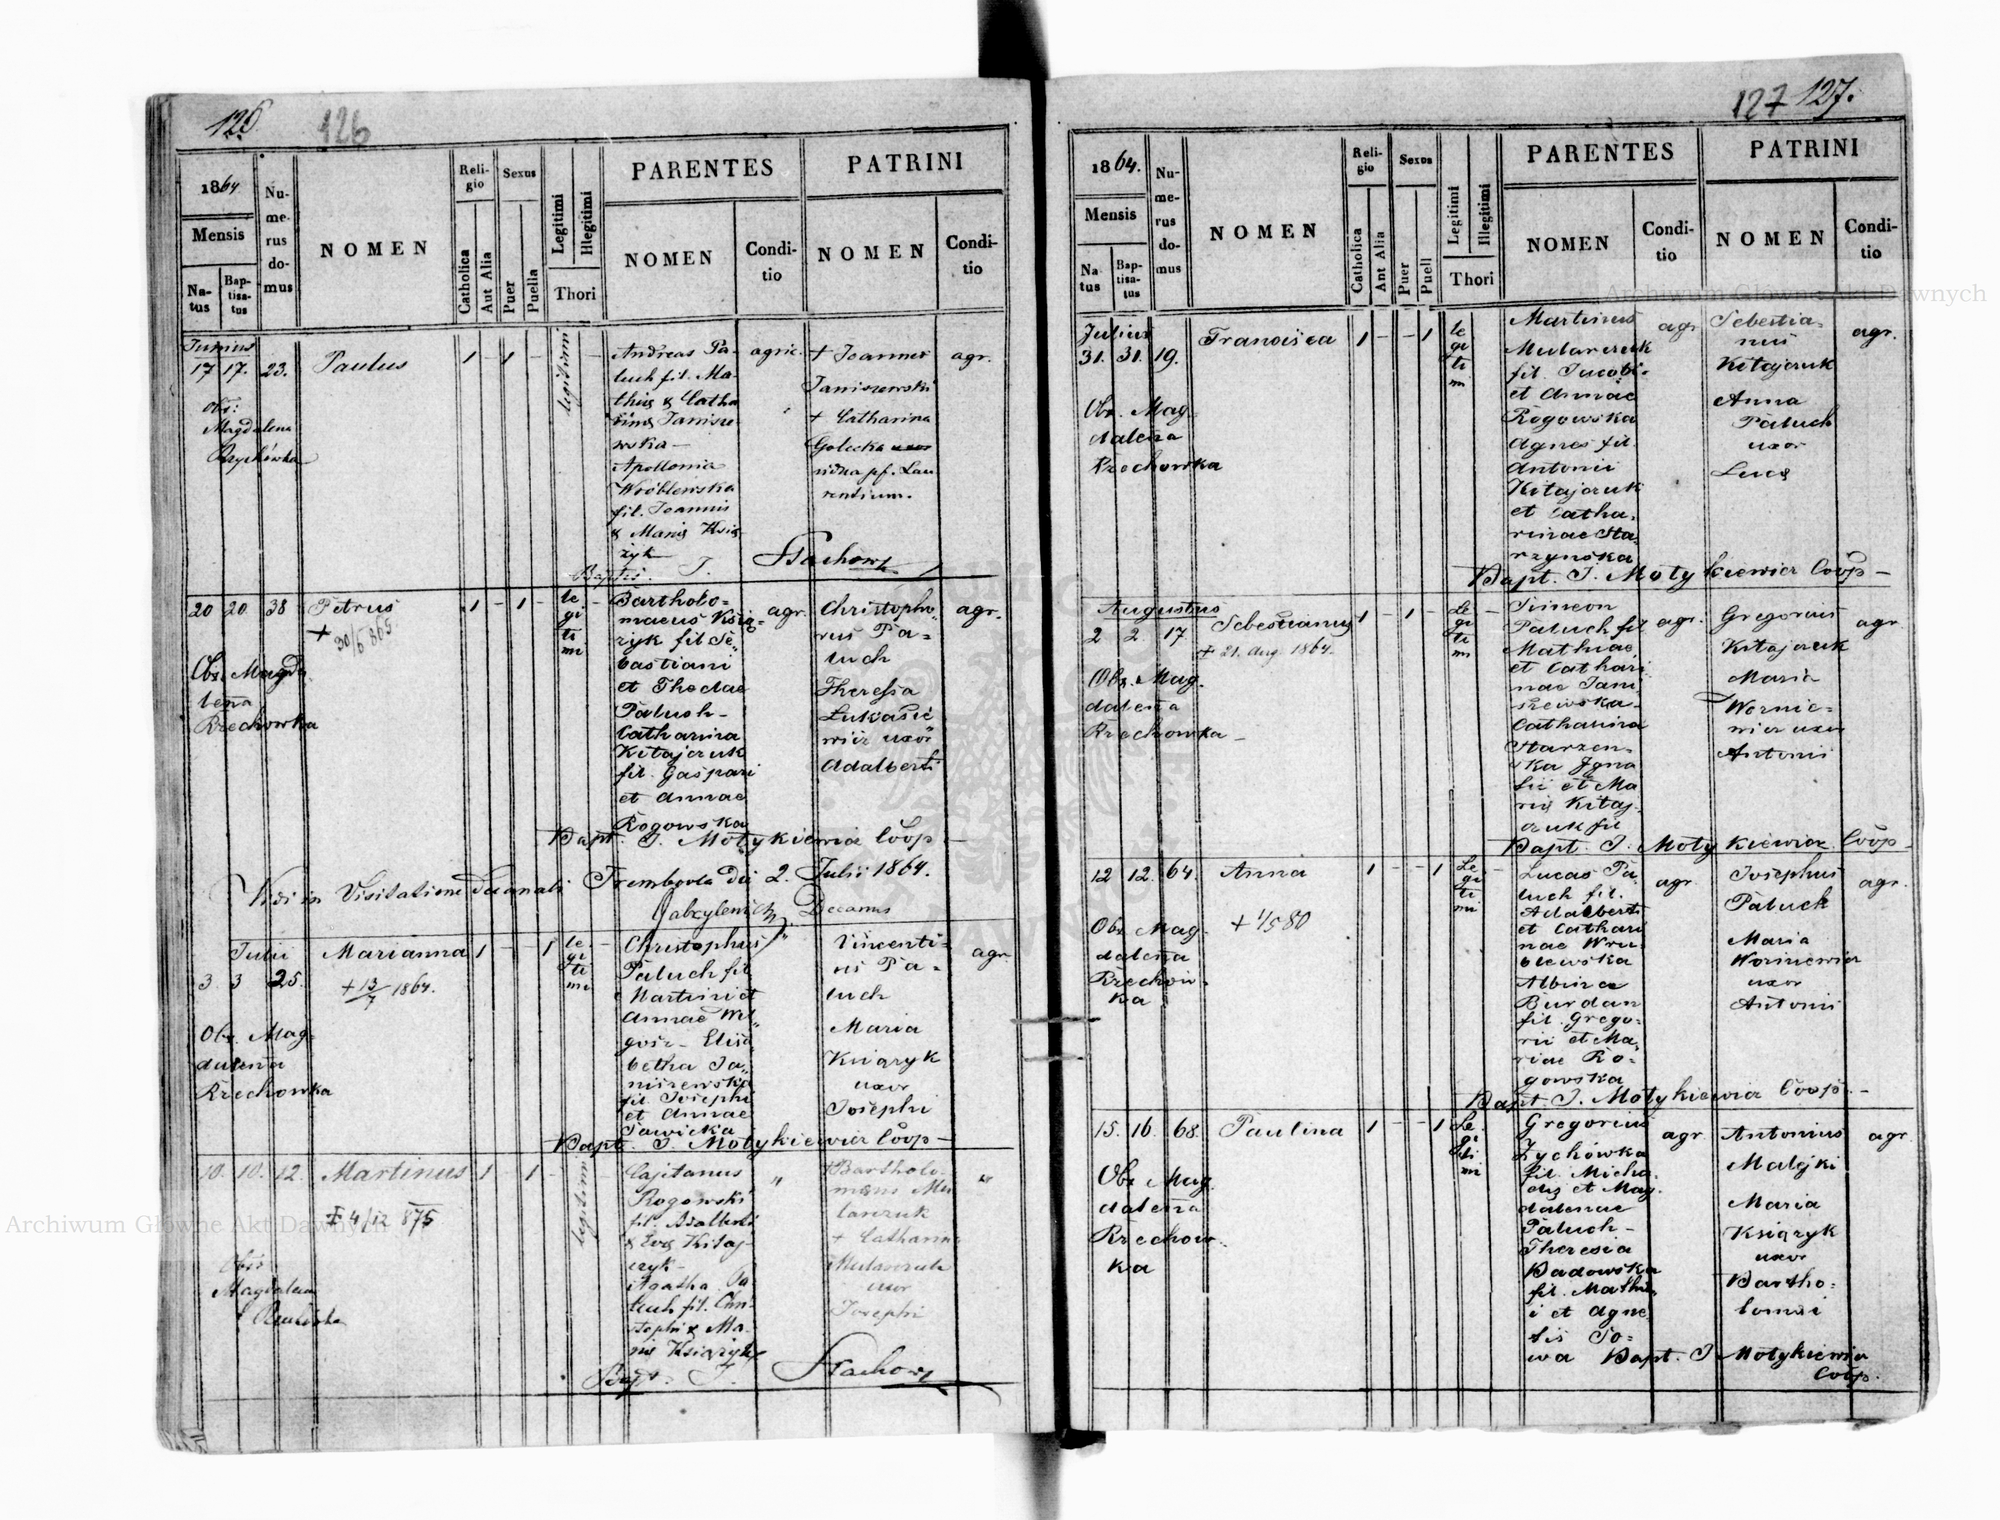 126.
126
1864
Mensis
Na-
tus
Bap-
tisa-
tus
Nu-
me-
rus
do-
mus
NOMEN
Reli-
gio
Catholica
Aut Alia
Sexus
Puer
Puella
Legitimi
Illegitimi
Thori
PARENTES
NOMEN
Condi-
tio
PATRINI
NOMEN
Condi-
tio
Junius
17 17. 23. Paulus 1 - 1 -
legitimi
Obs:
Magdalena
Andreas Pa-
luch fil. Ma-
thiæ & Catha
rinæ Janisze
wska -
Apollonia
Wróblewska
fil. Joannis
& Mariæ Ksią
żyk
agric.
+ Joannes
Janiszewski
+ Catharina
Golecka
vidua pf. Lau
rentium.
agr.
Baptis. J. Stachow
20 20. 38 Petrus 1 - 1 -
+ 30/6 865
le
gi
ti
mi
Obs. Magda
lena
Rzechowka
Bartholo-
maeus Ksią-
zyk fil Se-
bastiani
et Theclae
Paluch -
Catharina
Kitajczuk
fil. Gaspari
et Annae
Rogowska
agr.
Christopho
rus Pa-
luch
Theressa
Lukasie
wicz uxor
Adalberti
agr.
Bapt. J. Motykiewicz Coop -
Vidi in Visitatione Decanali Trembovla die 2. Julii 1864.
Decanus
Julii
3 3 25. Marianna 1 - - 1
+ 13/7 1864.
le
gi
ti
mi
Obs. Mag-
dalena
Rzechowka
Christophus
Paluch fil
Martini et
Annae Wil-
gosz - Elisa
betha Ja-
niszewska
fil Josephi
et Annae
Sawicka
Vincenti-
us Pa-
luch
Maria
Ksiązyk
uxor
Josephi
agr.
Bapt. J. Motykiewicz Coop -
10. 10. 12. Martinus 1 - 1 -
‡ 4/12 875
legitimi
Obs:
Magdalena
Cajetanus
Rogowski
fil. Adalberti
& Evæ Kitaj-
czyk -
Agatha Pa
luch fil. Chri-
stophi & Ma-
riæ Ksiązyk
"
+ Bartholo-
mæus Mu
larczuk
+ Catharina
Mularczuk
uxor
Josephi
"
Bapt. J. Stachow
127 127.
1864.
Mensis
Na
tus
Bap-
tisa-
tus
Nu-
me-
rus
do-
mus
NOMEN
Reli-
gio
Catholica
Aut Alia
Sexus
Puer
Puell
Legitimi
Illegitimi
Thori
PARENTES
NOMEN
Condi-
tio
PATRINI
NOMEN
Condi-
tio
Julius
31. 31. 19. Francisca 1 - - 1
le
gi
ti
mi
Obs. Mag
dalena
Rzechowka
Martinus
Mularczuk
fil. Jacobi
et Annae
Rogowska
Agnes fil.
Antonii
Kitajczuk
et Catha.
rinae Sta-
rzynska
agr.
Sebestia-
nus
Kitajczuk
Anna
Paluch
uxor
Lucæ
agr.
Bapt. J. Motykiewicz Coop -
Augustus
2 2. 17 Sebestianus 1 - 1 -
+ 21. Aug. 1864.
Le
gi
ti
mi
Obs. Mag.
dalena
Rzechowka -
Simeon
Paluch fil
Mathiae
et Cathari
nae Jani
szewska -
Catharina
Starzen-
ska Igna
tii et Ma
riæ Kitaj-
czuk fil
agr.
Gregorius
Kitajczuk
Maria
Wornie-
wicz uxor
Antonii
agr.
Bapt. J. Motykiewicz Coop -
12 12. 64. Anna 1 - - 1
+ 1/5 80
Le
gi
ti
mi
Obs. Mag.
dalena
Rzechow-
ka
Lucas Pa
luch fil.
Adalberti
et Cathari
nae Wru-
blewska
Albina
Burdan
fil. Grego-
rii et Ma-
riae Ro-
gowska
agr.
Josephus
Paluch
Maria
Worniewicz
uxor
Antonii
agr.
Bapt. J. Motykiewicz Coop. -
15. 16. 68. Paulina 1 - - 1
Le
gi
ti
mi
Obs Mag.
dalena
Rzechow-
ka
Gregorius
Zychówka
fil. Micha-
elis et Mag-
dalenae
Paluch -
Theresia
Badowska
fil. Mathi-
i et Agne
tis So-
wa
agr.
Antonius
Malejki
Maria
Ksiązyk
uxor
Bartho-
lomæi
agr
Bapt. J Motykiewicz
Coop.
Archiwum Główne Akt Dawnych
Archiwum Główne Akt Dawnych